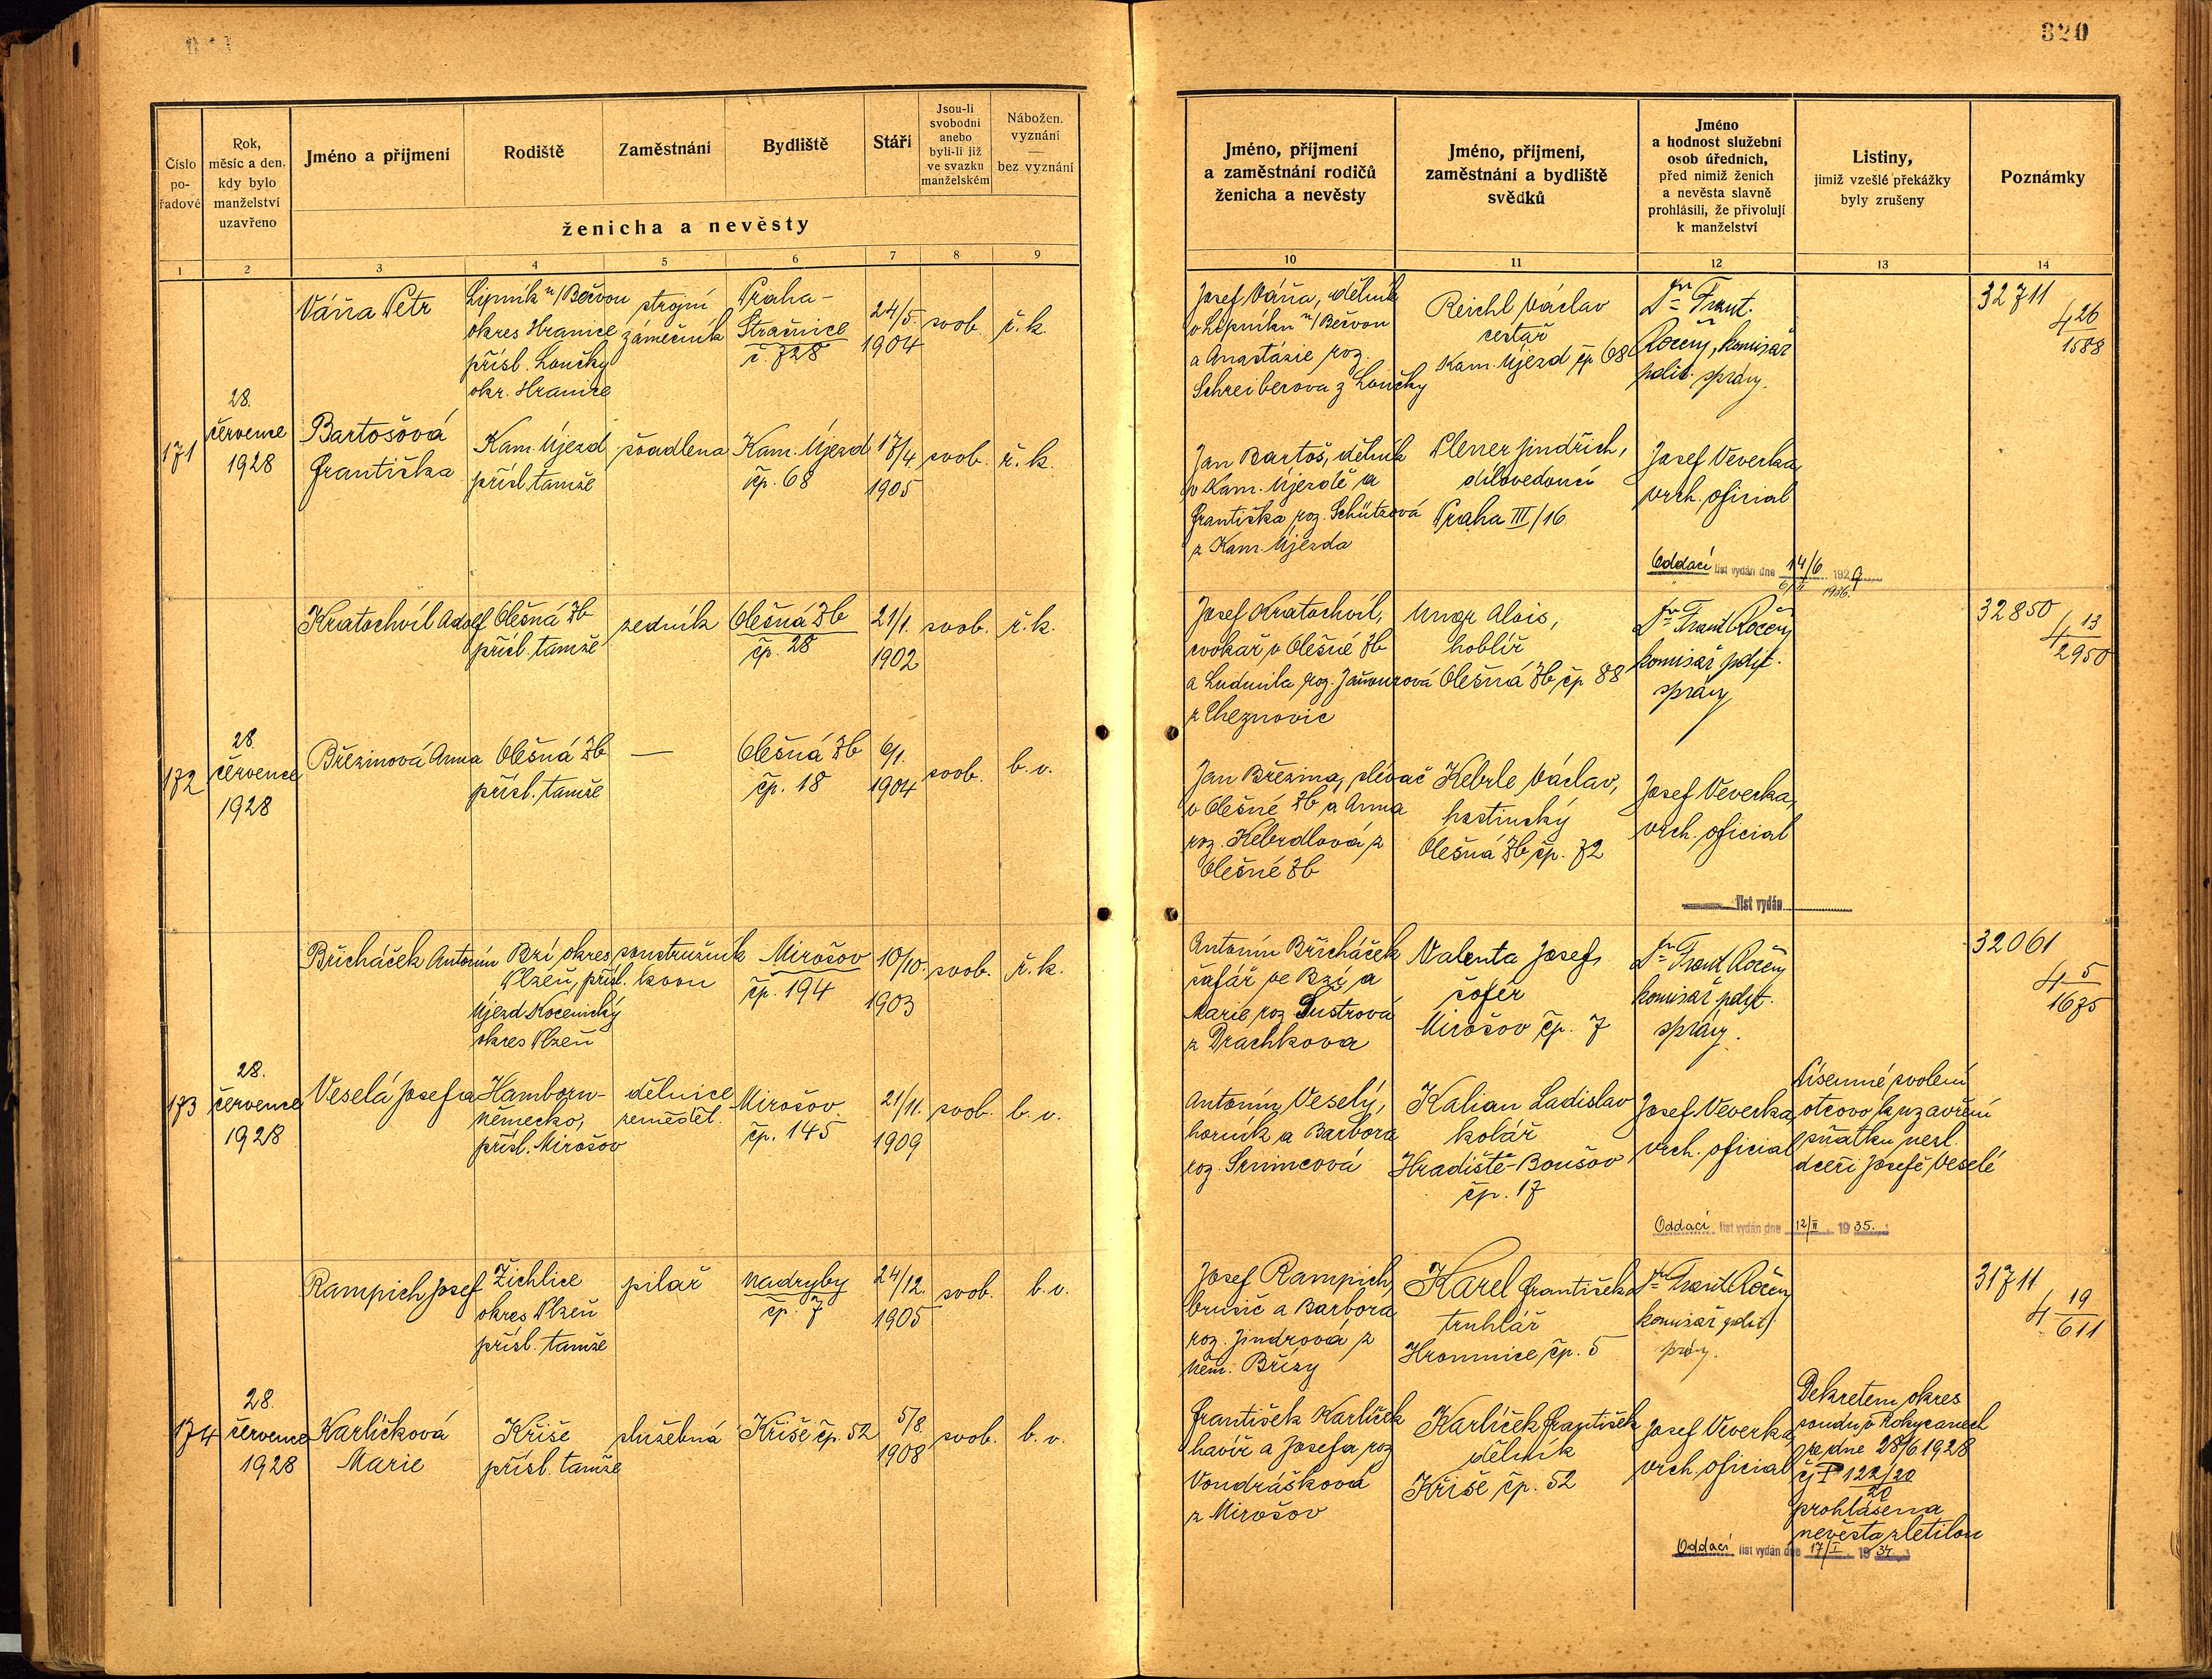 320
Číslo pořadové
Rok, měsíc a den, kdy bylo manželství uzavřeno
Jméno a příjmení
Rodiště
Zaměstnání
Bydliště
Stáří
Jsou-li svobodni anebo byli-li již ve svazku manželském
Nábožen. vyznání — bez vyznání
ženicha a nevěsty
1 2 3 4 5 6 7 8 9
Jméno, příjmení a zaměstnání rodičů ženicha a nevěsty
Jméno, příjmení, zaměstnání a bydliště svědků
Jméno a hodnost služební osob úředních, před nimiž ženich a nevěsta slavně prohlásili, že přivolují k manželství
Listiny, jimiž vzešlé překážky byly zrušeny
Poznámky
10 11 12 13 14
171
28.
července
1928
Váňa Petr
Lipník n/Bečvou
okres Hranice
přísl. Loučky
okr. Hranice
strojní
zámečník
Praha-
Strašnice
č. 728
24/5.
1904
svob.
ř. k.
Josef Váňa, dělník
v Lipníku n/Bečvou
a Anastázie roz.
Schreiberova z Loučky
Reichl Václav
cestař
Kam. Újezd čp 68
komisař
polit. správy.
32711
4 26/1588
Bartošová
Františka
Kam. Újezd
přísl. tamže
švadlena
Kam. Újezd
čp. 68
17/4.
1905
svob.
ř. k.
Jan Bartoš, dělník
v Kam. Újezdě a
Františka roz. Schützová
z Kam. Újezda
Plener Jindřich,
dílovedoucí
Praha III/16
Josef Veverka,
vrch. oficial
Oddací list vydán dne 14/6 1929
6/II 1936.
172
28.
července
1928
Kratochvíl Adolf
Olešná Zb
přísl. tamže
zedník
Olešná Zb
čp. 28
21/1.
1902
svob.
ř. k.
Josef Kratochvíl,
cvokař v Olešné Zb
a Ludmila roz.
z Cheznovic
Ungr Alois,
hoblíř
Olešná Zb čp 88
komisař polit.
správy
32850
4 13/2950
Březinová Anna
Olešná Zb
přísl. tamže
—
Olešná Zb
čp. 18
6/1.
1904
svob.
b. v.
Jan Březina, slévač
v Olešné Zb a Anna
roz. Kebrdlová z
Olešné Zb
Kebrle Václav,
hostinský
Olešná Zb čp. 72
Josef Veverka,
vrch. oficial
list vydán
173
28.
července
1928
Břicháček Antonín
Bzí, okres
Plzeň, přísl.
Újezd
okres Plzeň
soustružník
kovu
Mirošov
čp. 194
10/10.
1903
svob.
ř. k.
Antonín Břicháček
šafář ve Bzí a
Marie roz. Šustrová
z Drachkova
Valenta Josef
šofér
Mirošov čp. 7
komisař polit.
správy.
32061
4 5/1675
Veselá Josefa
Hamborn-
německo,
přísl. Mirošov
dělnice
zeměděl.
Mirošov
čp. 145
21/11.
1909
svob.
b. v.
Antonín Veselý,
horník a Barbora
roz.
Kalian Ladislav
kolář
Hradiště-Boušov
čp. 17
Josef Veverka,
vrch. oficial
Písemné svolení
otcovo k uzavření
sňatku nezl.
dceři Josefě Veselé
Oddací list vydán dne 12/II 1935.
174
28.
července
1928
Rampich Josef
Žichlice
okres Plzeň
přísl. tamže
pilař
Nadryby
čp. 7
24/12.
1905
svob.
b. v.
Josef Rampich,
brusič a Barbora
roz. Jindrová z
Něm. Břízy
Karel František
truhlář
Hromnice čp. 5
komisař polit.
správy.
31711
4 19/611
Karlíčková
Marie
Kříše
přísl. tamže
služebná
Kříše čp. 52
5/8.
1908
svob.
b. v.
František Karlíček
havíř a Josefa roz
Vondrášková
z Mirošov
Karlíček František
dělník
Kříše čp. 52
Josef Veverka
vrch. oficial
Dekretem okres
soudu v Rokycanech
ze dne 28/6 1928
čj P 122/20
20
prohlášena
nevěsta zletilou
Oddací list vydán dne 17/I 1934.